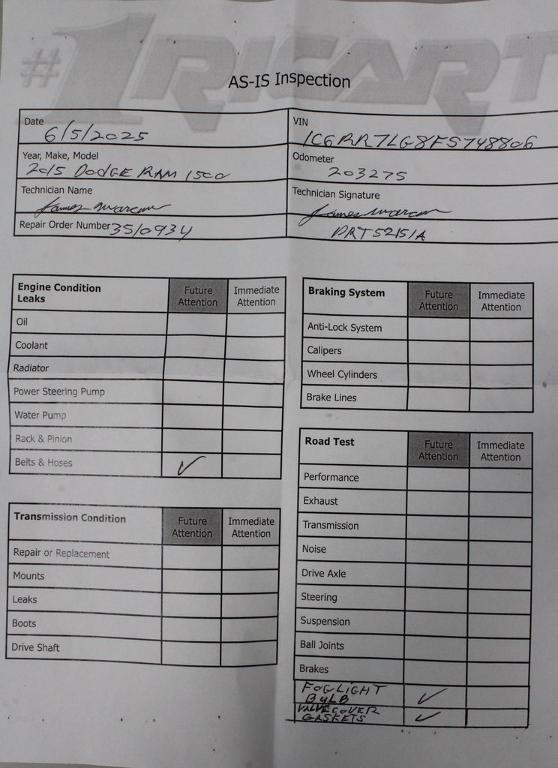 #1 RICART
AS-IS Inspection
Date 6/5/2025
VIN 1C6RR7LG8FS748806
Year, Make, Model 2015 DODGE RAM 1500
Odometer 203275
Technician Name
Technician Signature
Repair Order Number 3510934
PRT52151A
Engine Condition Leaks Future Attention Immediate Attention
Oil
Coolant
Radiator
Power Steering Pump
Water Pump
Rack & Pinion
Belts & Hoses ✓
Transmission Condition Future Attention Immediate Attention
Repair or Replacement
Mounts
Leaks
Boots
Drive Shaft
Braking System Future Attention Immediate Attention
Anti-Lock System
Calipers
Wheel Cylinders
Brake Lines
Road Test Future Attention Immediate Attention
Performance
Exhaust
Transmission
Noise
Drive Axle
Steering
Suspension
Ball Joints
Brakes
FOGLIGHT
BULB ✓
VALVE COVER
GASKETS ✓